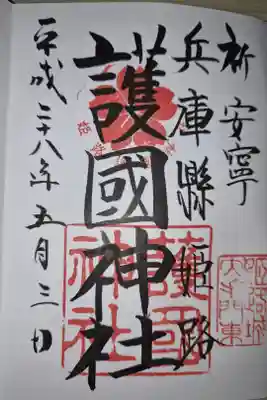 祈安寧
兵庫縣姫路
護國神社
平成二十八年五月三日
護國
神社